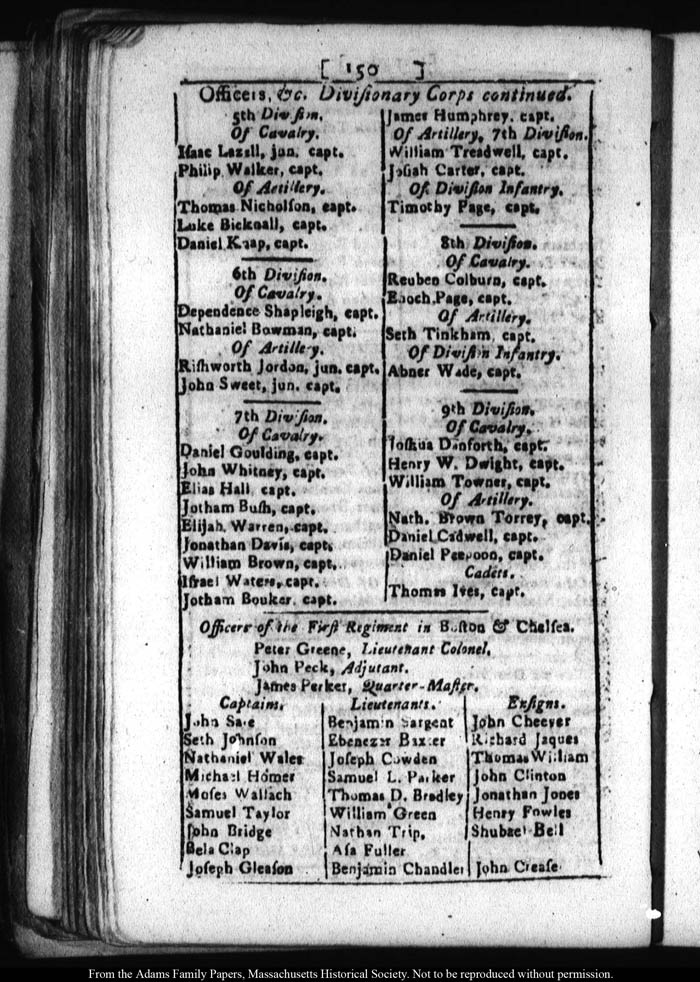 [ 150 ]
Officers, &c. Diviſionary Corps continued.
5th Diviſion.
Of Cavalry.
Iſaac Lazell, jun. capt.
Philip Walker, capt.
Of Artillery.
Thomas Nicholſon, capt.
Luke Bicknall, capt.
Daniel Knap, capt.
6th Diviſion.
Of Cavalry.
Dependence Shapleigh, capt.
Nathaniel Bowman, capt.
Of Artillery.
Riſhworth Jordon, jun. capt.
John Sweet, jun. capt.
7th Diviſion.
Of Cavalry.
Daniel Goulding, capt.
John Whitney, capt.
Elias Hall, capt.
Jotham Buſh, capt.
Elijah Warren, capt.
Jonathan Davis, capt.
William Brown, capt.
Iſrael Waters, capt.
Jotham Bouker, capt.
James Humphrey, capt.
Of Artillery, 7th Diviſion.
William Treadwell, capt.
Joſiah Carter, capt.
Of Diviſion Infantry.
Timothy Page, capt.
8th Diviſion.
Of Cavalry.
Reuben Colburn, capt.
Enoch Page, capt.
Of Artillery.
Seth Tinkham, capt.
Of Diviſion Infantry.
Abner Wade, capt.
9th Diviſion.
Of Cavalry.
Joſhua Danforth, capt.
Henry W. Dwight, capt.
William Towner, capt.
Of Artillery.
Nath. Brown Torrey, capt.
Daniel Cadwell, capt.
Daniel Pepoon, capt.
Cadets.
Thomas Ives, capt.
Officers of the Firſt Regiment in Boſton & Chelſea.
Peter Greene, Lieutenant Colonel.
John Peck, Adjutant.
James Perker, Quarter-Maſter.
Captains.
John
Seth Johnſon
Nathaniel Wales
Michael Homer
Moſes Wallach
Samuel Taylor
John Bridge
Bela Clap
Joſeph Gleaſon
Lieutenants.
Benjamin Sargent
Ebenezer Baxter
Joſeph Cowden
Samuel L. Parker
Thomas D. Bradley
William Green
Nathan Trip,
Aſa Fuller
Benjamin Chandler
Enſigns.
John Cheever
Richard Jaques
Thomas William
John Clinton
Jonathan Jones
Henry Fowles
Shubael Bell
John Creaſe
From the Adams Family Papers, Massachusetts Historical Society. Not to be reproduced without permission.